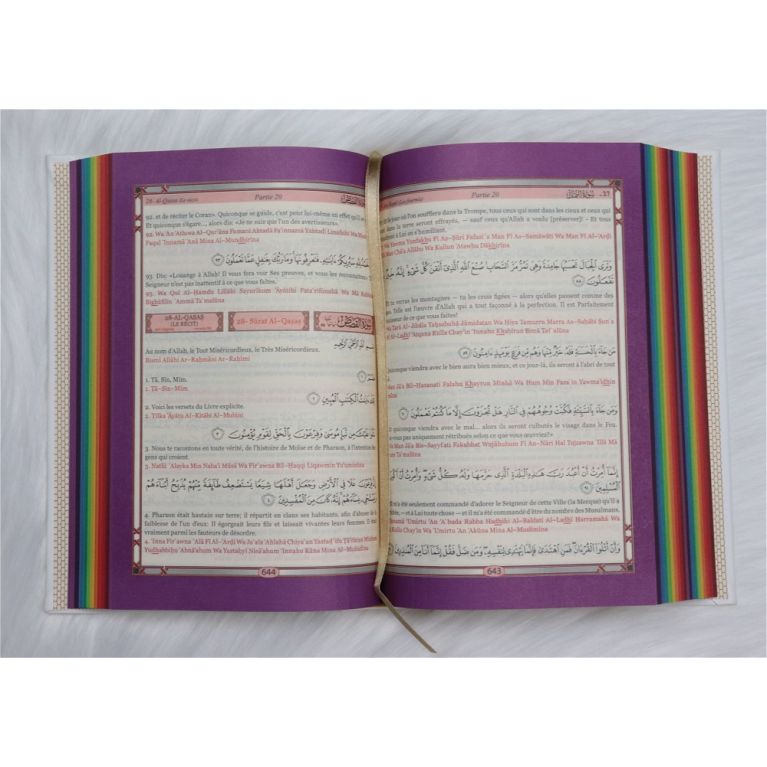 Partie 20
سورة النمل
le jour où l'on soufflera dans la Trompe, tous ceux qui sont dans les cieux et ceux qui
sur la terre seront effrayés, — sauf ceux qu'Allah a voulu [préserver]! - Et tous
à Lui en s'humiliant.
Wa Yawma Yunfakhu Fī Aṣ-Ṣūri Fafazi`a Man Fī As-Samāwāti Wa Man Fī Al-'Arḍi
Man Shā'a Allāhu Wa Kullun 'Atawhu Dākhirīna
وَتَرَى الْجِبَالَ تَحْسَبُهَا جَامِدَةً وَهِيَ تَمُرُّ مَرَّ السَّحَابِ صُنْعَ اللَّهِ الَّذِي أَتْقَنَ كُلَّ شَيْءٍ إِنَّهُ خَبِيرٌ بِمَا
تَفْعَلُونَ ٨٨
Et tu verras les montagnes — tu les crois figées — alors qu'elles passent comme des
Telle est l'œuvre d'Allah qui a tout façonné à la perfection. Il est Parfaitement
de ce que vous faites!
Wa Tará Al-Jibāla Taḥsabuhā Jāmidatan Wa Hiya Tamurru Marra As-Saḥābi Ṣun`a
Al-Ladhī 'Atqana Kulla Shay'in 'Innahu Khabīrun Bimā Taf`alūna
مَن جَاءَ بِالْحَسَنَةِ فَلَهُ خَيْرٌ مِّنْهَا وَهُم مِّن فَزَعٍ يَوْمَئِذٍ آمِنُونَ ٨٩
viendra avec le bien aura bien mieux, et ce jour-là, ils seront à l'abri de tout
Jā'a Bil-Ḥasanati Falahu Khayrun Minhā Wa Hum Min Faza`in Yawma'idhin
وَمَن جَاءَ بِالسَّيِّئَةِ فَكُبَّتْ وُجُوهُهُمْ فِي النَّارِ هَلْ تُجْزَوْنَ إِلَّا مَا كُنتُمْ تَعْمَلُونَ ٩٠
quiconque viendra avec le mal... alors ils seront culbutés le visage dans le Feu.
vous pas uniquement rétribués selon ce que vous œuvriez?»
Man Jā'a Bis-Sayyi'ati Fakubbat Wujūhuhum Fī An-Nāri Hal Tujzawna 'Illā Mā
Ta`malūna
إِنَّمَا أُمِرْتُ أَنْ أَعْبُدَ رَبَّ هَٰذِهِ الْبَلْدَةِ الَّذِي حَرَّمَهَا وَلَهُ كُلُّ شَيْءٍ وَأُمِرْتُ أَنْ أَكُونَ مِنَ
الْمُسْلِمِينَ ٩١
m'a été seulement commandé d'adorer le Seigneur de cette Ville (la Mecque) qu'Il a
— et à Lui toute chose — et il m'a été commandé d'être du nombre des Musulmans.
'Umirtu 'An 'A`buda Rabba Hadhihi Al-Baldati Al-Ladhī Ḥarramahā Wa
Kullu Shay'in Wa 'Umirtu 'An 'Akūna Mina Al-Muslimīna
وَأَنْ أَتْلُوَ الْقُرْآنَ فَمَنِ اهْتَدَىٰ فَإِنَّمَا يَهْتَدِي لِنَفْسِهِ وَمَن ضَلَّ فَقُلْ إِنَّمَا أَنَا مِنَ الْمُنذِرِينَ ٩٢
643
28- Al-Qasas
Partie 20
سورة القصص
92. et de réciter le Coran». Quiconque se guide, c'est pour lui-même en effet qu'il
Et quiconque s'égare..., alors dis: «Je ne suis que l'un des avertisseurs».
92. Wa 'An 'Atluwa Al-Qur'āna Famani Ahtadá Fa'innamā Yahtadī Linafsihi Wa Man
Faqul 'Innamā 'Anā Mina Al-Mundhirīna
لِلَّهِ سَيُرِيكُمْ آيَاتِهِ فَتَعْرِفُونَهَا وَمَا رَبُّكَ بِغَافِلٍ عَمَّا تَعْمَلُونَ ٩٣
93. Dis: «Louange à Allah! Il vous fera voir Ses preuves, et vous les reconnaîtrez».
Seigneur n'est pas inattentif à ce que vous faites.
93. Wa Qul Al-Ḥamdu Lillāhi Sayurīkum 'Āyātihi Fata`rifūnahā Wa Mā Rabbuka
Bighāfilin `Ammā Ta`malūna
28-AL-QASAS
(LE RÉCIT)
28- Sūrat Al-Qaṣaṣ
سورة القصص
اللَّهِ الرَّحْمَٰنِ الرَّحِيمِ
Au nom d'Allah, le Tout Miséricordieux, le Très Miséricordieux.
Bismi Allāhi Ar-Raḥmāni Ar-Raḥīmi
طسم ١
1. Tâ, Sîn, Mîm.
1. Ṭā-Sīn-Mīm
تِلْكَ آيَاتُ الْكِتَابِ الْمُبِينِ ٢
2. Voici les versets du Livre explicite.
2. Tilka 'Āyātu Al-Kitābi Al-Mubīni
عَلَيْكَ مِن نَّبَإِ مُوسَىٰ وَفِرْعَوْنَ بِالْحَقِّ لِقَوْمٍ يُؤْمِنُونَ ٣
3. Nous te racontons en toute vérité, de l'histoire de Moïse et de Pharaon, à l'intention
gens qui croient.
3. Natlū `Alayka Min Naba'i Mūsá Wa Fir`awna Bil-Ḥaqqi Liqawmin Yu'uminūna
فِرْعَوْنَ عَلَا فِي الْأَرْضِ وَجَعَلَ أَهْلَهَا شِيَعًا يَسْتَضْعِفُ طَائِفَةً مِّنْهُمْ يُذَبِّحُ أَبْنَاءَهُمْ
نِسَاءَهُمْ إِنَّهُ كَانَ مِنَ الْمُفْسِدِينَ ٤
4. Pharaon était hautain sur terre; il répartit en clans ses habitants, afin d'abuser de
faiblesse de l'un d'eux: Il égorgeait leurs fils et laissait vivantes leurs femmes. Il
vraiment parmi les fauteurs de désordre.
4. 'Inna Fir`awna `Alā Fī Al-'Arḍi Wa Ja`ala 'Ahlahā Shiya`an Yastaḍ`ifu Ṭā'ifatan Minhum
Yudhabbiḥu 'Abnā'ahum Wa Yastaḥyī Nisā'ahum 'Innahu Kāna Mina Al-Mufsidīna
644